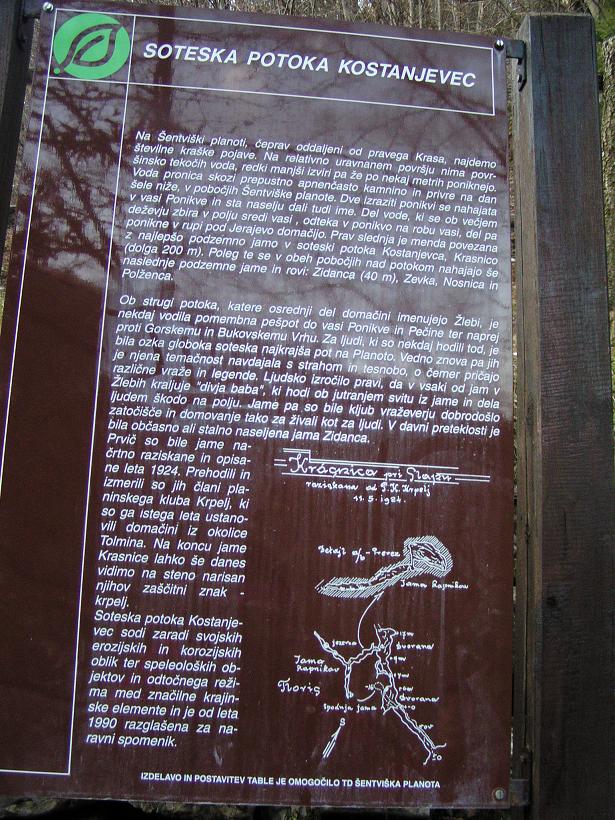 SOTESKA POTOKA KOSTANJEVEC
Na Šentviški planoti, čeprav oddaljeni od pravega Krasa, najdemo
številne kraške pojave. Na relativno uravnanem površju nima povr-
šinsko tekočih voda, redki manjši izviri pa že po nekaj metrih poniknejo.
Voda pronica skozi prepustno apnenčasto kamnino in privre na dan
šele niže, v pobočjih Šentviške planote. Dve izraziti ponikvi se nahajata
v vasi Ponikve in sta naselju dali tudi ime. Del vode, ki se ob večjem
deževju zbira v polju sredi vasi, odteka v ponikvo na robu vasi, del pa
ponikne v rupi pod Jerajevo domačijo. Prav slednja je menda povezana
z najlepšo podzemno jamo v soteski potoka Kostanjevca, Krasnico
(dolga 200 m). Poleg te se v obeh pobočjih nad potokom nahajajo še
naslednje podzemne jame in rovi: Zidanca (40 m), Zevka, Nosnica in
Polženca.
Ob strugi potoka, katere osrednji del domačini imenujejo Žlebi, je
nekdaj vodila pomembna pešpot do vasi Ponikve in Pečine ter naprej
proti Gorskemu in Bukovskemu Vrhu. Za ljudi, ki so nekdaj hodili tod, je
bila ozka globoka soteska najkrajša pot na Planoto. Vedno znova pa jih
je njena temačnost navdajala s strahom in tesnobo, o čemer pričajo
različne vraže in legende. Ljudsko izročilo pravi, da v vsaki od jam v
Žlebih kraljuje "divja baba", ki hodi ob jutranjem svitu iz jame in dela
ljudem škodo na polju. Jame pa so bile kljub vraževerju dobrodošlo
zatočišče in domovanje tako za živali kot za ljudi. V davni preteklosti je
bila občasno ali stalno naseljena jama Zidanca.
Prvič so bile jame na-
črtno raziskane in opisa-
ne leta 1924. Prehodili in
izmerili so jih člani pla-
ninskega kluba Krpelj, ki
so ga istega leta ustano-
vili domačini iz okolice
Tolmina. Na koncu jame
Krasnice lahko še danes
vidimo na steno narisan
njihov zaščitni znak -
krpelj.
Soteska potoka Kostanje-
vec sodi zaradi svojskih
erozijskih in korozijskih
oblik ter speleoloških ob-
jektov in odtočnega reži-
ma med značilne krajin-
ske elemente in je od leta
1990 razglašena za na-
ravni spomenik.
Krasnica pri Slapu
raziskana od P.K. Krpelj
11.5.1924.
Detajl a/b - Prerez
Jama Rapnikov
jezero
dvorana
Jama
Rapnikov
Tloris
dvorana
spodnja jama
S
IZDELAVO IN POSTAVITEV TABLE JE OMOGOČILO TD ŠENTVIŠKA PLANOTA